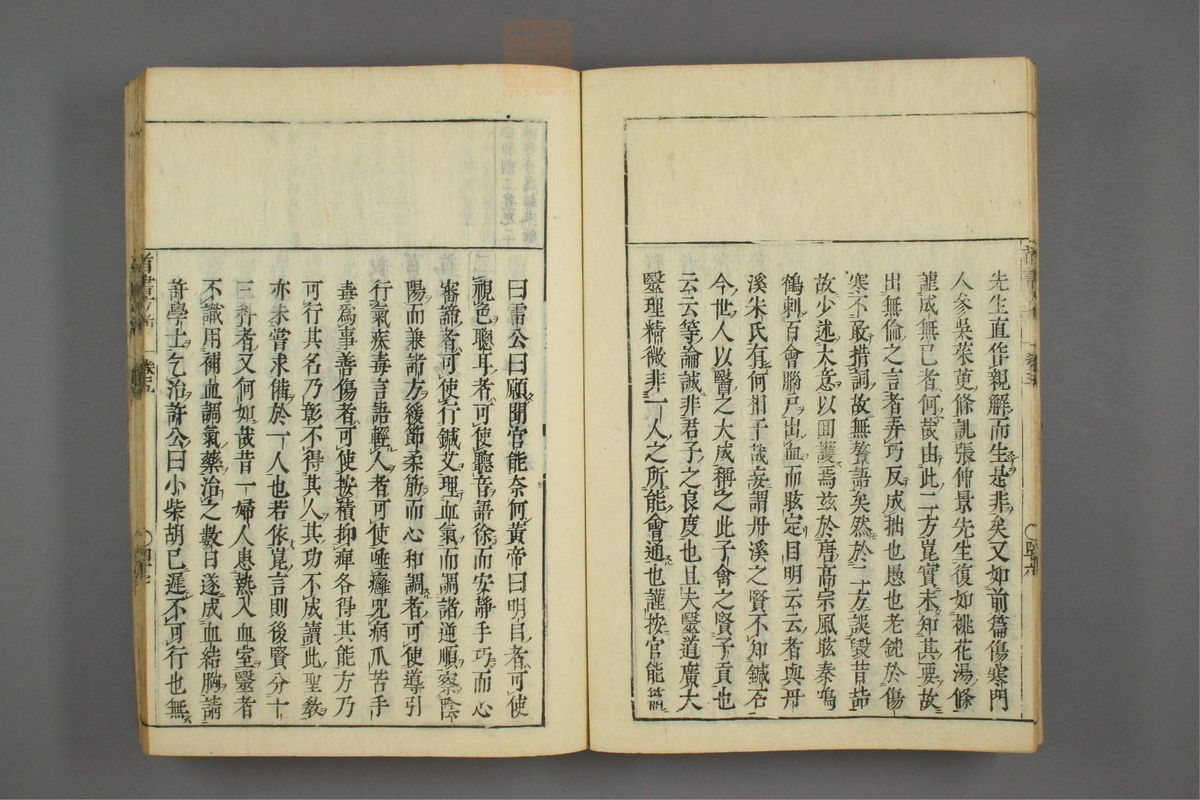 先生直作親解而生是非矣又如前篇傷寒門
人參吳茱萸條訕張仲景先生復如桃花湯條
謔成無已者何哉由此二方崑實未知其要故
出無倫之言者弄巧反成拙也愚也老鈍於傷
寒不敢措詞故無贅語矣然於二方誤毀昔
故少述大意以回護焉玆於唐高宗風眩秦鳴
鶴刺百會腦戶出血而眩定目明云云者與丹
溪朱氏有何相干哉妄謂丹溪之賢不知鍼石
今世人以醫之大成稱之此子禽之賢子貢也
云云等論誠非君子之良度也且夫醫道廣大
醫理精微非一人之所能會通也謹按官能篇
曰雷公曰願聞官能奈何黃帝曰明目者可使
視色聰耳者可使聽音語徐而安靜手巧而心
審諦者可使行鍼艾理血氣而調諸逆順察陰
陽而兼諸方緩節柔筋而心和調者可使導引
行氣疾毒言語輕人者可使唾癰咒病爪苦手
毒爲事善傷者可使按積抑痺各得其能方乃
可行其名乃彰不得其人其功不成讀此聖教
亦未嘗求備於一人也若依崑言則後賢分十
三科者又何如哉昔一婦人患熱入血室醫者
不識用補血調氣藥治之數日遂成血結胸請
許學士乞治許公曰小柴胡已遲不可行也無
卷三